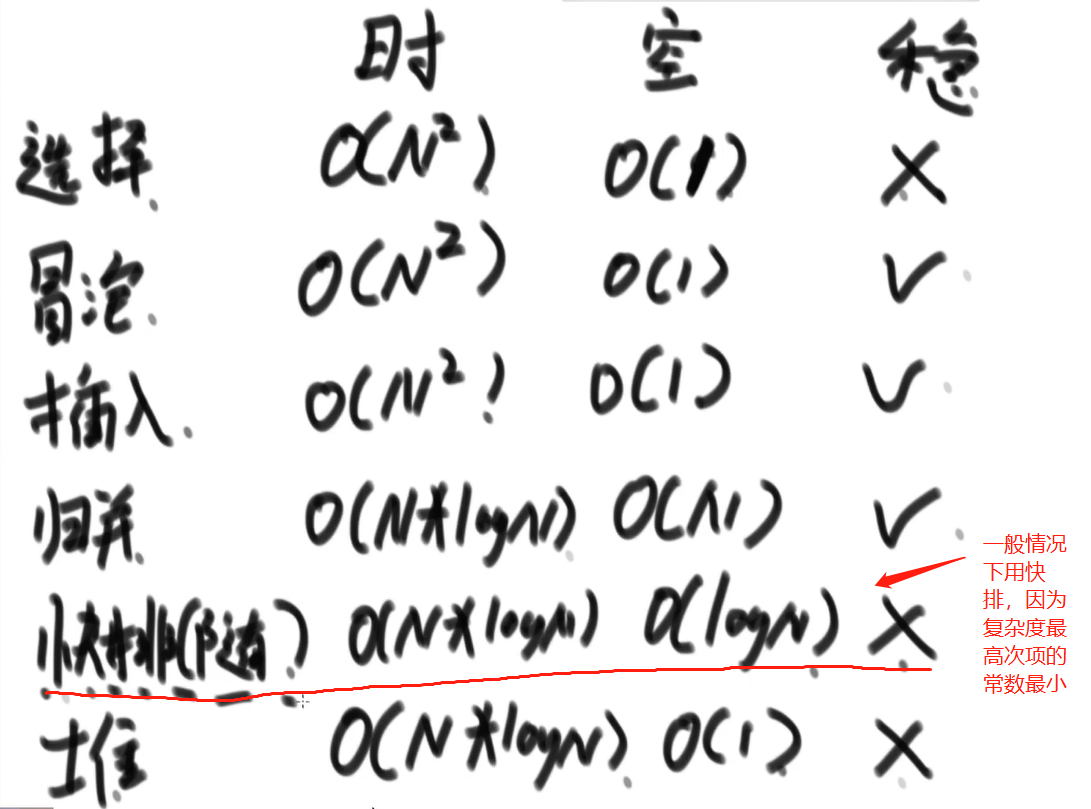 时 空 稳
选择 O(N²) O(1) ×
冒泡 O(N²) O(1) ✓
插入 O(N²) O(1) ✓
归并 O(N*logN) O(N) ✓
快排(随) O(N*logN) O(logN) ×
堆 O(N*logN) O(1) ×
一般情况
下用快
排，因为
复杂度最
高次项的
常数最小